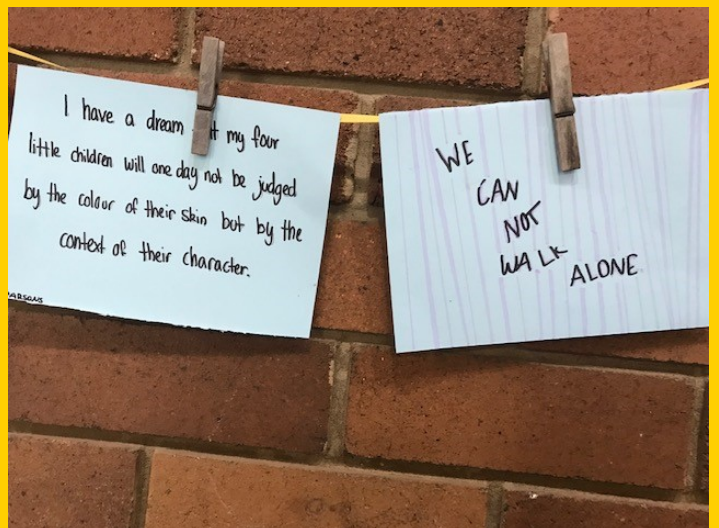 I have a dream my four
little children will one day not be judged
by the colour of their skin but by the
context of their character.
ARSONS
WE
CAN
NOT
WALK
ALONE